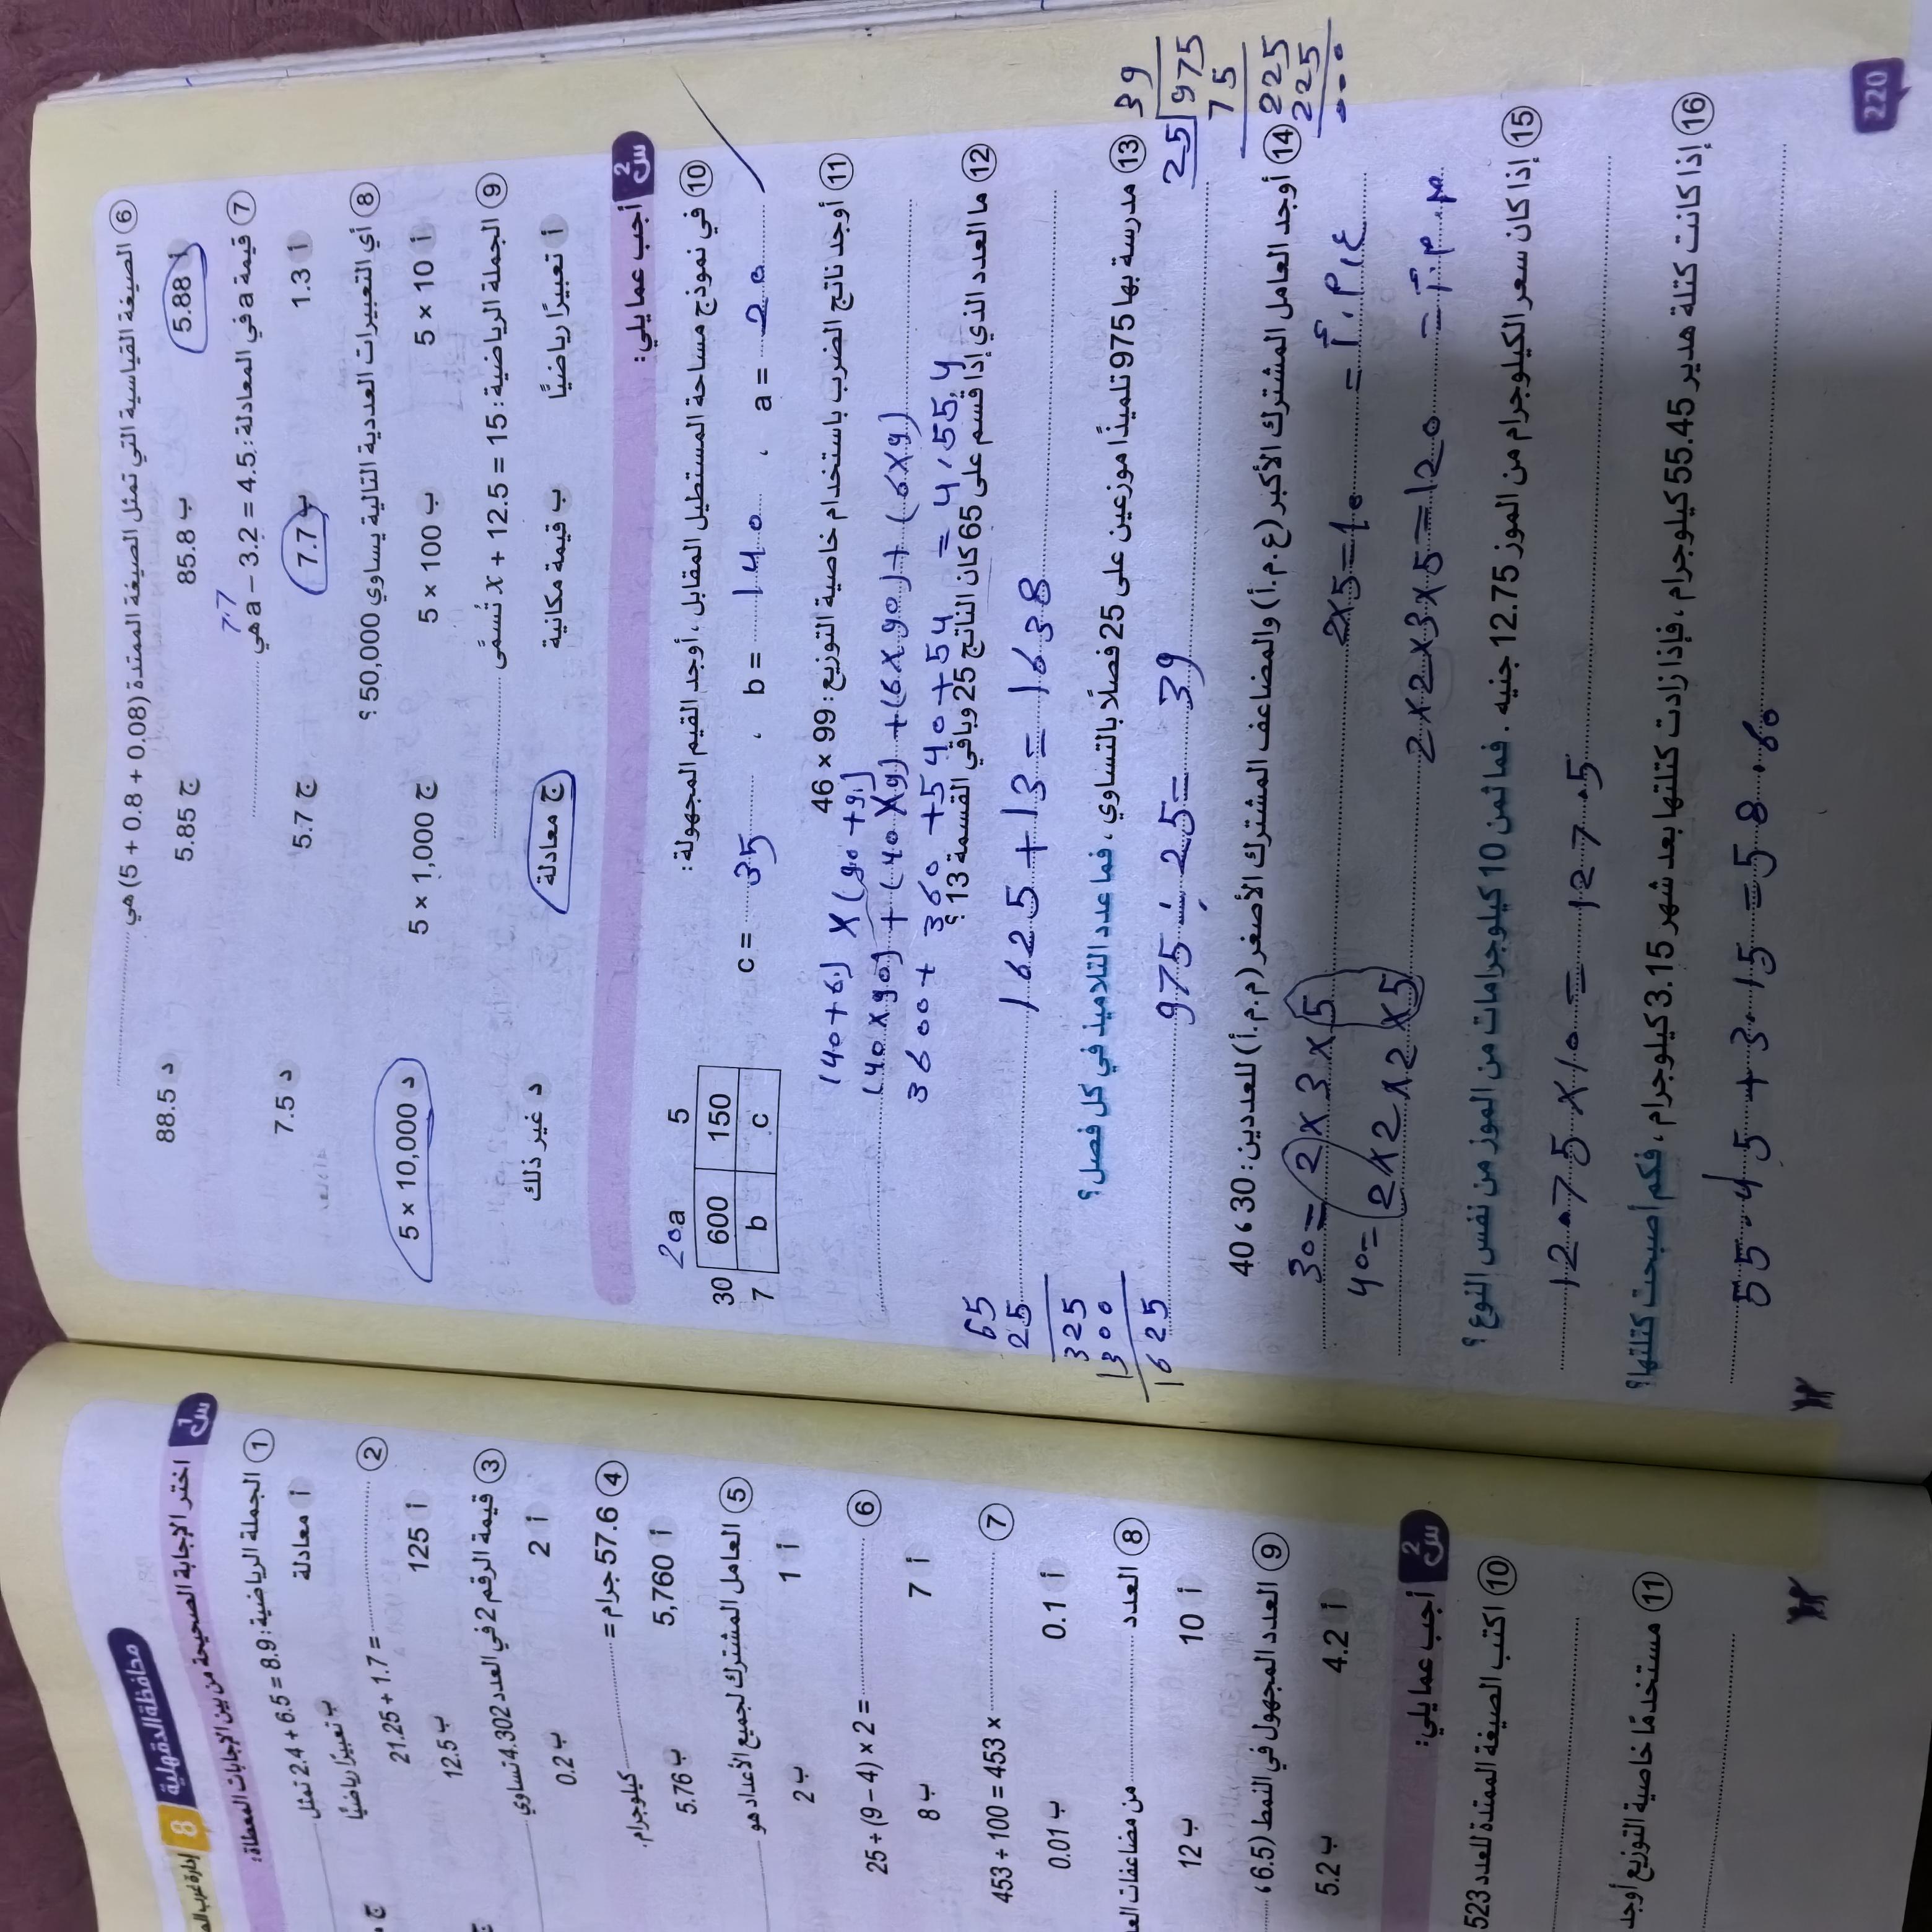 6 الصيغة القياسية التي تمثل الصيغة الممتدة (5 + 0.8 + 0.08) هي
أ 5.88 ب 85.8 ج 5.85 د 88.5
7.7
7 قيمة a في المعادلة: a – 3.2 = 4.5 هي
أ 1.3 ب 7.7 ج 5.7 د 7.5
8 أي التعبيرات العددية التالية يساوي 50,000 ؟
أ 5 × 10 ب 5 × 100 ج 5 × 1,000 د 5 × 10,000
9 الجملة الرياضية: x + 12.5 = 15 تُسمَّى
أ تعبيرًا رياضيًا ب قيمة مكانية ج معادلة د غير ذلك
س2 أجب عما يلي:
10 في نموذج مساحة المستطيل المقابل، أوجد القيم المجهولة:
a = 20 ، b = 140 ، c = 35
20 a 5
30 600 150
7 b c
11 أوجد ناتج الضرب باستخدام خاصية التوزيع: 46 × 99
(40+6) × (90+9)
(40×90) + (40×9) + (6×90) + (6×9)
3600 + 360 + 540 + 54 = 4,554
12 ما العدد الذي إذا قسم على 65 كان الناتج 25 وباقي القسمة 13 ؟
1625 + 13 = 1638
65
25
325
1300
1625
13 مدرسة بها 975 تلميذًا موزعين على 25 فصلًا بالتساوي، فما عدد التلاميذ في كل فصل؟
975 ÷ 25 = 39
39
25 975
75
225
225
000
14 أوجد العامل المشترك الأكبر (ع.م.أ) والمضاعف المشترك الأصغر (م.م.أ) للعددين: 30 ، 40
30 = 2×3×5
2×5=10 = ع.م.أ
40 = 2×2×2×5
2×2×3×5=120 = م.م.أ
15 إذا كان سعر الكيلوجرام من الموز 12.75 جنيه. فما ثمن 10 كيلوجرامات من الموز من نفس النوع؟
12.75 × 10 = 127.5
16 إذا كانت كتلة هدير 55.45 كيلوجرام، فإذا زادت كتلتها بعد شهر 3.15 كيلوجرام، فكم أصبحت كتلتها؟
55.45 + 3.15 = 58.60
220
8 محافظة الدقهلية
س1 اختر الإجابة الصحيحة من بين الإجابات المعطاة:
1 الجملة الرياضية: 2.4 + 6.5 = 8.9 تمثل
أ معادلة ب تعبيرًا رياضيًا
2 21.25 + 1.7 =
أ 125 ب 12.5
3 قيمة الرقم 2 في العدد 4.302 تساوي
أ 2 ب 0.2
4 57.6 جرام = كيلوجرام.
أ 5,760 ب 5.76
5 العامل المشترك لجميع الأعداد هو
أ 1 ب 2
6 25 ÷ (9 – 4) × 2 =
أ 7 ب 8
7 453 ÷ 100 = 453 ×
أ 0.1 ب 0.01
8 العدد من مضاعفات
أ 10 ب 12
9 العدد المجهول في النمط (6.5 ،
أ 4.2 ب 5.2
س2 أجب عما يلي:
10 اكتب الصيغة الممتدة للعدد 523
11 مستخدمًا خاصية التوزيع أوجد